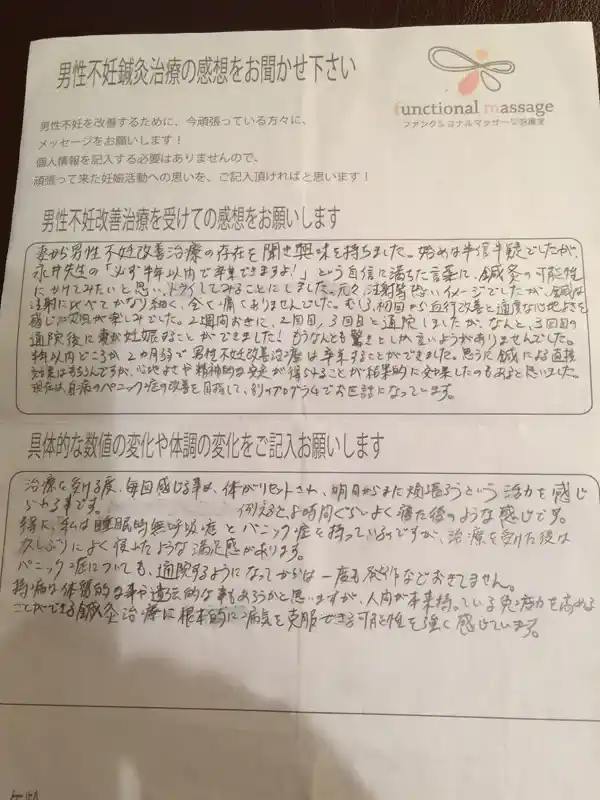 男性不妊鍼灸治療の感想をお聞かせ下さい
functional massage
ファンクショナルマッサージ治療室
男性不妊を改善するために、今頑張っている方々に、
メッセージをお願いします！
個人情報を記入する必要はありませんので、
頑張って来た妊娠活動への思いを、ご記入頂ければと思います！
男性不妊改善治療を受けての感想をお願いします
妻から男性不妊改善治療の存在を聞き興味を持ちました。始めは半信半疑でしたが、
永井先生の「必ず半年以内で卒業できますよ！」という自信に満ちた言葉に、鍼灸の可能性
にかけてみたいと思い、トライしてみることにしました。元々、注射等恐いイメージでしたが、鍼は
注射に比べてかなり細く、全く痛くありませんでした。むしろ、初回から血行改善と適度な心地よさを
感じ次回が楽しみでした。2週間おきに、2回目、3回目と通院しましたが、なんと、3回目の
通院後に妻が妊娠することができました！もうなんとも驚きとしか言いようがありませんでした。
半年以内どころか、2ヵ月弱で男性不妊改善治療は卒業することができました。思うに鍼による直接
効果はもちろんですが、心地よさや精神的な安定が得られることが結果的に効果したのもあると思いました。
現在は、自病のパニック症の改善を目指して、別のプログラムでお世話になっています。
具体的な数値の変化や体調の変化をご記入お願いします
治療を受ける度、毎回感じる事は、体がリセットされ、明日からまた頑張ろうという活力を感じ
られる事です。 例えると8時間ぐらいよく寝た後のような感じです。
特に、私は睡眠時無呼吸症とパニック症を持っているのですが、治療を受けた後は
久しぶりによく寝れたような満足感があります。
パニック症についても、通院するようになってからは一度も発作などおきてません。
持病は体質的な事や遺伝的な事もあろうかと思いますが、人間が本来持っている免疫力を高める
ことができる鍼灸治療に根本的に病気を克服できる可能性を強く感じています。